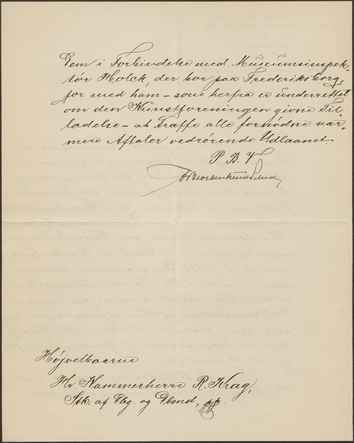 Dem i Forbindelse med Museumsinspek-
tør Holck, der bor paa Frederiksborg,
for med ham – som herfra er underrettet
om den Kunstforeningen givne Til-
ladelse – at træffe alle fornødne nær-
mere Aftaler vedrørende Udlaanet.
P. B. V.
Højvelbaarne
Hr Kammerherre R. Krag,
Stk. af Dbg. og Dbmd,